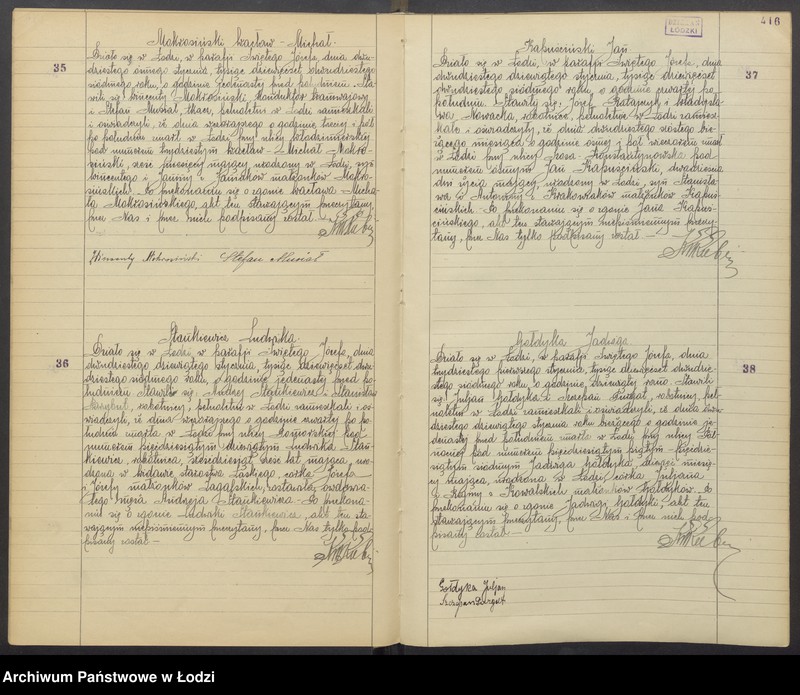 35
Mokrosiński Wacław - Michał
Działo się w Łodzi, w parafji Świętego Józefa, dnia dwu-
dziestego ósmego stycznia, tysiąc dziewięćset dwudziestego
siódmego roku, o godzinie jedenastej przed południem. Sta-
wili się Wincenty Mokrosiński, konduktor tramwajowy
i Stefan Musiał, tkacz, pełnoletni w Łodzi zamieszkali
i oświadczyli, iż dnia wczorajszego o godzinie trzeciej i pół
po południu, zmarł w Łodzi przy ulicy Włodzimierskiej
pod numerem Wacław - Michał Mokro-
siński, sześć miesięcy mający, urodzony w Łodzi, syn
Wincentego i Janiny z małżonków Mokro-
sińskich. Po przekonaniu się o zgonie Wacława Micha-
ła Mokrosińskiego, akt ten stawającym przeczytany,
przez Nas i przez nich podpisany został.
Wincenty Mokrosiński Stefan Musiał
36
Stankiewicz Ludwika
Działo się w Łodzi, w parafji Świętego Józefa, dnia
dwudziestego dziewiątego stycznia, tysiąc dziewięćset dwu-
dziestego siódmego roku, o godzinie jedenastej przed po-
łudniem. Stawili się Andrzej Stankiewicz i Stanisław
robotnicy, pełnoletni w Łodzi zamieszkali i oś-
wiadczyli, iż dnia wczorajszego o godzinie czwartej po po-
łudniu, zmarła w Łodzi przy ulicy pod
numerem pięćdziesiątym dziewiątym Ludwika Stan-
kiewicz, robotnica, sześćdziesiąt sześć lat mająca, uro-
dzona w Widawie starostwa Łaskiego, córka Józefa
i Józefy małżonków zostawiła owdowia-
łego męża Andrzeja Stankiewicza. Po przekona-
niu się o zgonie Ludwiki Stankiewicz, akt ten sta-
wającym niepiśmiennym przeczytany, przez Nas tylko pod-
pisany został.
416
ARCHIWUM ŁÓDZKI
37
Kapuściński Jan
Działo się w Łodzi, w parafji Świętego Józefa, dnia
dwudziestego dziewiątego stycznia, tysiąc dziewięćset
dwudziestego siódmego roku, o godzinie czwartej po
południu. Stawili się Józef Ratajczyk i Władysła-
wa Nowacka, robotnice, pełnoletnie w Łodzi zamiesz-
kałe i oświadczyły, iż dnia dwudziestego szóstego bie-
żącego miesiąca, o godzinie ósmej i pół wieczorem zmarł
w Łodzi przy ulicy Szosa Konstantynowska pod
numerem ósmym Jan Kapuściński, dwadzieścia
dni życia mający, urodzony w Łodzi, syn Stanisła-
wa i Antoniny z Krakowiaków małżonków Kapuś-
cińskich. Po przekonaniu się o zgonie Jana Kapuś-
cińskiego, akt ten stawającym niepiśmiennym przeczy-
tany, przez Nas tylko podpisany został.
38
Gołdyka Jadwiga
Działo się w Łodzi, w parafji Świętego Józefa, dnia
trzydziestego pierwszego stycznia, tysiąc dziewięćset dwudzie-
stego siódmego roku, o godzinie dziewiątej rano. Stawili
się Juljan Gołdyka i Szczepan robotnicy, peł-
noletni w Łodzi zamieszkali i oświadczyli, iż dnia dwu-
dziestego dziewiątego stycznia roku bieżącego o godzinie je-
denastej przed południem zmarła w Łodzi przy ulicy
pod numerem pięćdziesiątym piątym pięćdzie-
siątym siódmym Jadwiga Gołdyka, miesię-
cy mająca, urodzona w Łodzi, córka Juljana
i z Kowalskich małżonków Gołdyków. Po
przekonaniu się o zgonie Jadwigi Gołdyki, akt ten
stawającym przeczytany, przez Nas i przez nich pod-
pisany został.
Gołdyka Juljan
Szczepan
Archiwum Państwowe w Łodzi